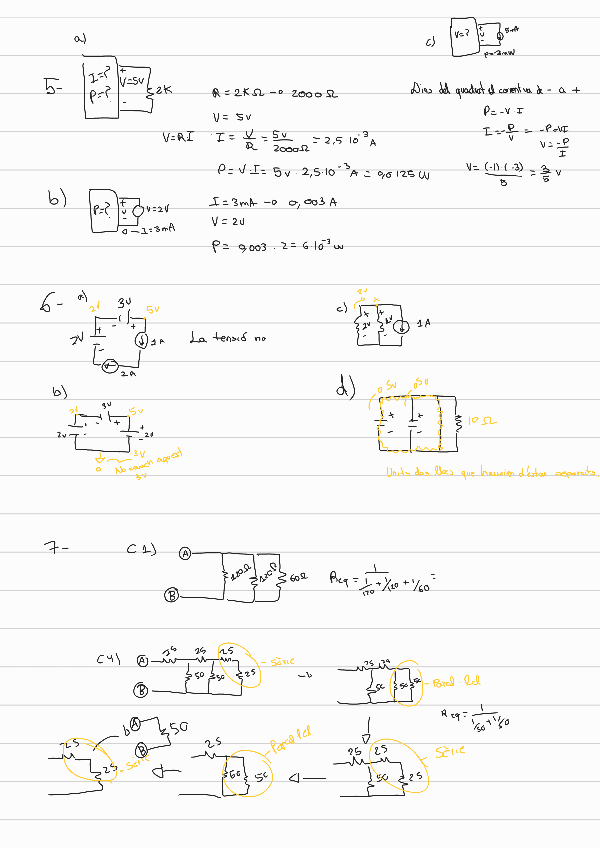 a)
c) V=? + V - 5mA
P=-3mW
5- I=? P=? + V=5V - 2K
R = 2KΩ → 2000Ω
V = 5V
V=RI I = V/R = 5V/2000Ω = 2,5·10⁻³ A
P = V·I = 5V · 2,5·10⁻³ A = 0,0125 W
Dins del quadrat el corrent va de - a +
P=-V·I
I=-P/V = -P=VI
V=-P/I
V= (-1)·(-3)/5 = 3/5 V
b) P=? + V - V=2V
I=3mA
I=3mA → 0,003A
V = 2V
P = 0,003 · 2 = 6·10⁻³ W
6- a) 2V 3V 5V
2V + - - + 1A
2A
La tensió no
c) + + 1A
- -
b) 2V 3V 5V
2V + - - + + - 2V
3V
0
d) 0 5V 0 5V
+ - + - 10Ω
Units dos llocs que haurien d'estar separats
7- C1) A B 120Ω 120Ω 60Ω
Req = 1/(1/120 + 1/120 + 1/60) =
C4) A 25 25 25
B 50 50 25 - Sèrie
25 25
50 50 50 - Paral·lel
Req = 1/(1/50+1/50)
25 25
50 25 Sèrie
25
50 50 Paral·lel
25
25 - Sèrie
A B 50